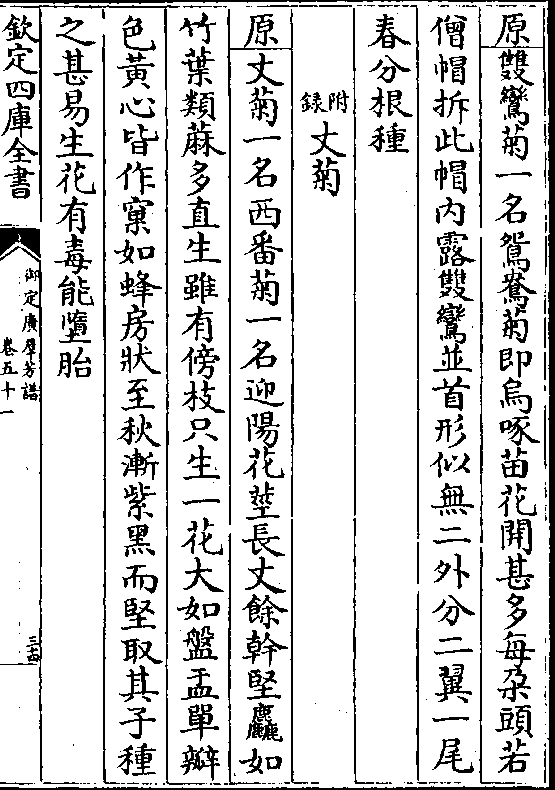 原雙鸞菊一名鴛鴦菊即烏啄苗花開甚多每朶頭若
僧帽拆此帽內露雙鸞並首形似無二外分二翼一尾
春分根種
附錄丈菊
原丈菊一名西番菊一名迎陽花莖長丈餘幹堅麤如
竹葉類蔴多直生雖有傍枝只生一花大如盤盂單瓣
色黃心皆作窠如蜂房狀至秋漸紫黑而堅取其子種
之甚易生花有毒能墮胎
欽定四庫全書
御定廣群芳譜
卷五十一
三十四